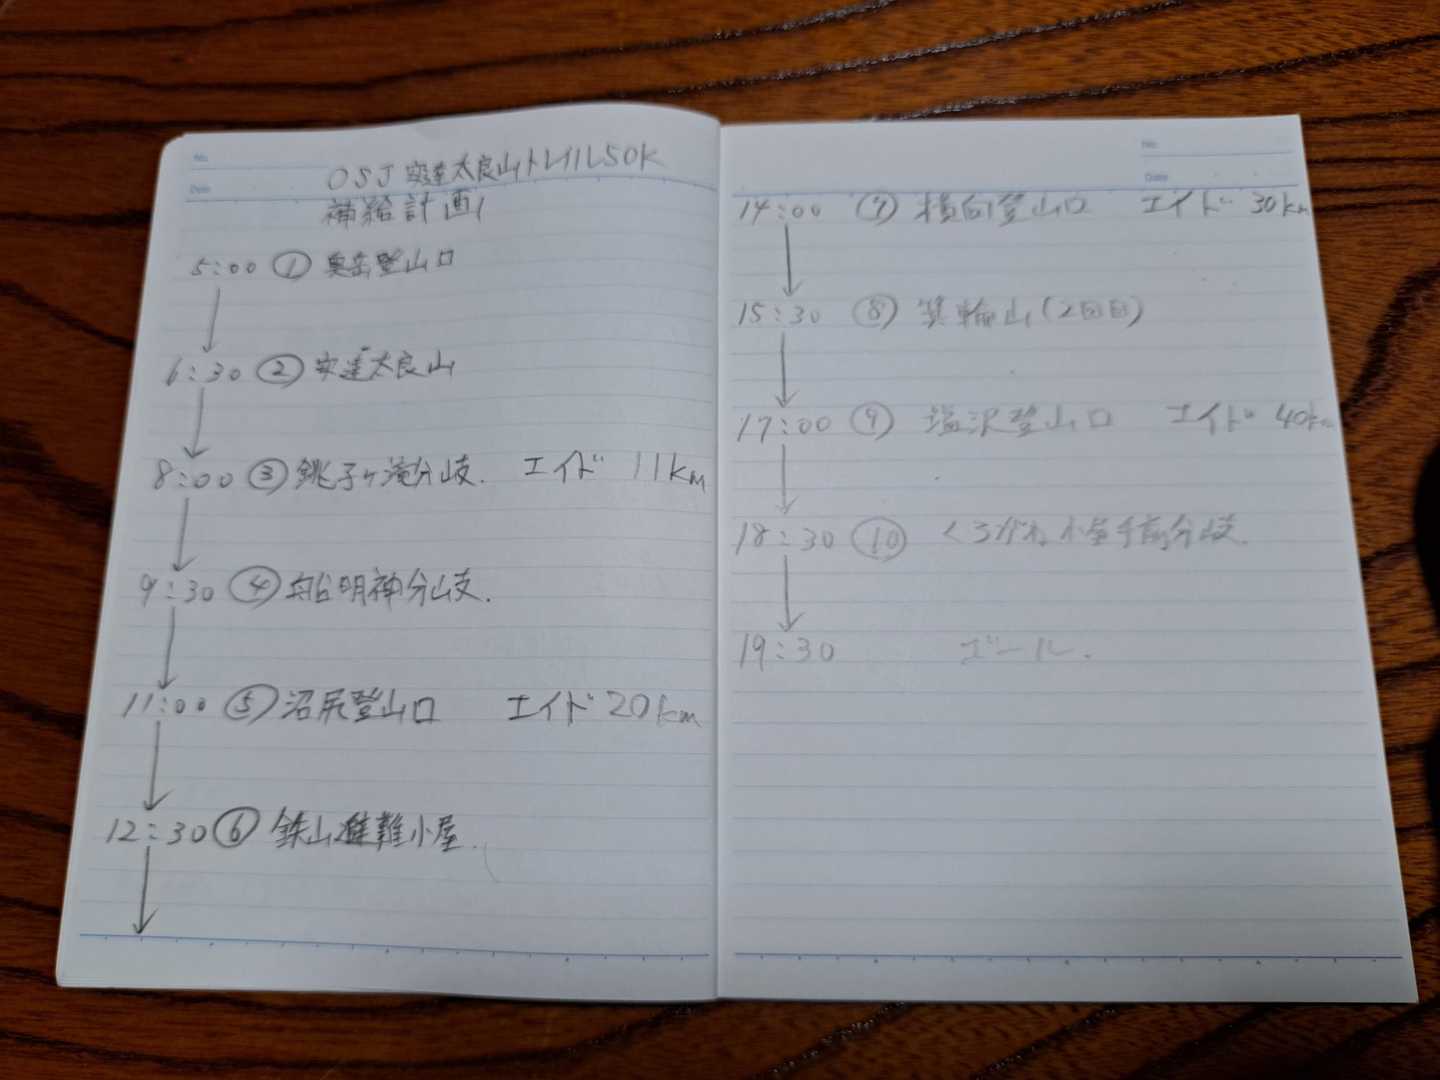 No.
Date
OSJ 安達太良山トレイル50K
補給計画
5:00 ① 奥岳登山口
6:30 ② 安達太良山
8:00 ③ 銚子ヶ滝分岐. エイド 11km
9:30 ④ 船明神分岐.
11:00 ⑤ 沼尻登山口 エイド 20km
12:30 ⑥ 鉄山避難小屋.
No.
Date
14:00 ⑦ 横向登山口 エイド 30km
15:30 ⑧ 箕輪山(2回目)
17:00 ⑨ 塩沢登山口 エイド 40km
18:30 ⑩ くろがね小屋手前分岐.
19:30 ゴール.